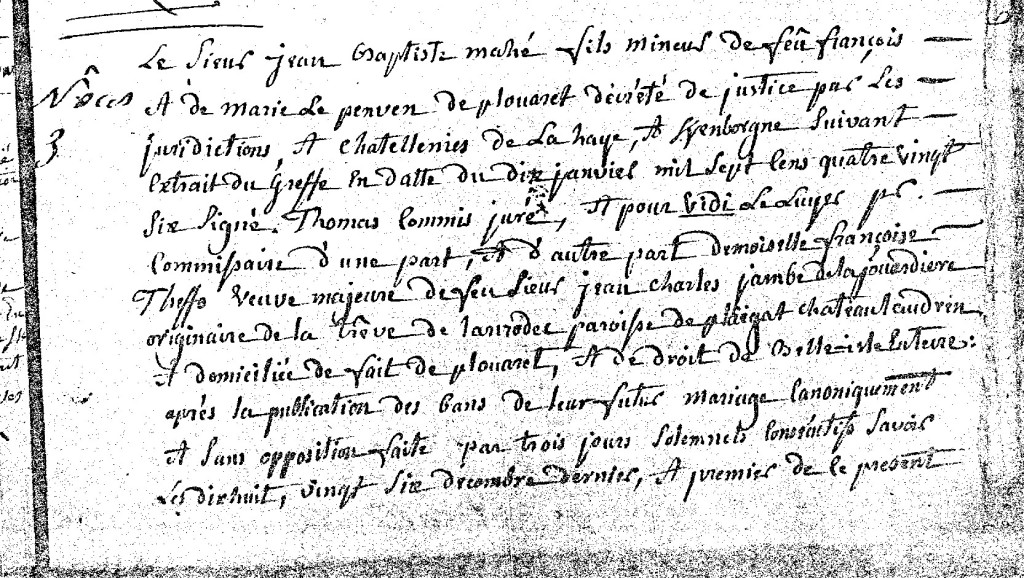 Nôces
3
Le sieur jean Baptiste mahé fils mineur de feû françois
et de marie Le penven de plouaret décrété de justice par Les
juridictions et chatellenies de La haye, et Kyenborgne suivant
Extrait du Greffe En datte du dix janvier mil sept Cens quatre vingt
six signé. Thomas Commis juré, et pour vidi Le Luyer pr.
Commissaire d'une part, et d'autre part demoiselle françoise
veuve majeure de feu sieur jean Charles jambe de la
originaire de la trêve de Lanrodec paroisse de plaigat chateaulaudren
et domiciliée de fait de plouaret, et de droit de Belle-isle Enterre:
après la publication des bans de leur futur mariage Canoniquement
et sans opposition faite par trois jours solemnels Consécutifs savoir
Les dixhuit, vingt six décembre dernier, et premier de le présent